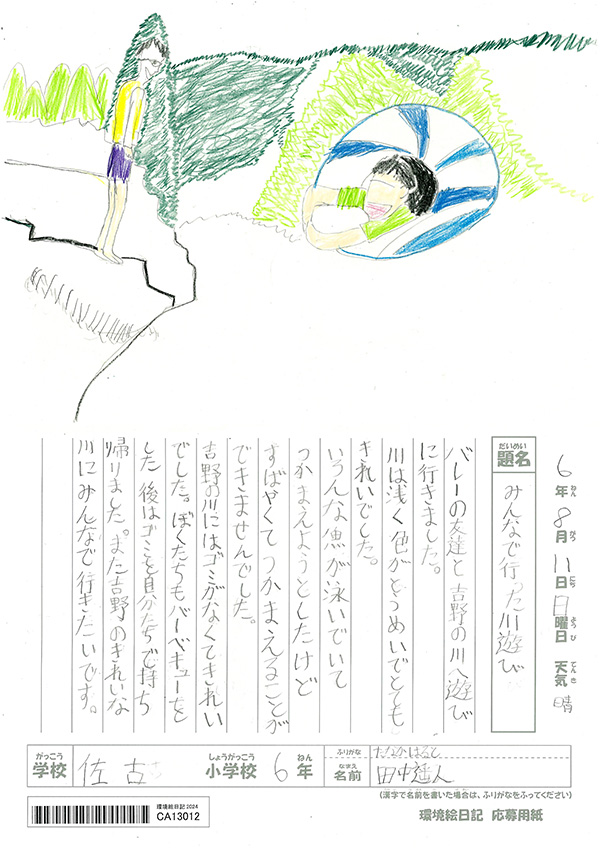 6年8月11日日曜日 天気 晴
ねん がつ にち ようび てんき
だいめい
題名 みんなで行った川遊び
バレーの友達と吉野の川へ遊び
に行きました。
川は浅く色がとうめいでとても
きれいでした。
いろんな魚が泳いでいて
つかまえようとしたけど
すばやくてつかまえることが
できませんでした。
吉野の川にはゴミがなくてきれい
でした。ぼくたちもバーベキューを
した後はゴミを自分たちで持ち
帰りました。また吉野のきれいな
川にみんなで行きたいです。
がっこう しょうがっこう ねん ふりがな たなかはると
学校 佐古 小学校 6年 なまえ 名前 田中遥人
(漢字で名前を書いた場合は、ふりがなをふってください)
環境絵日記 2024
CA13012
環境絵日記 応募用紙